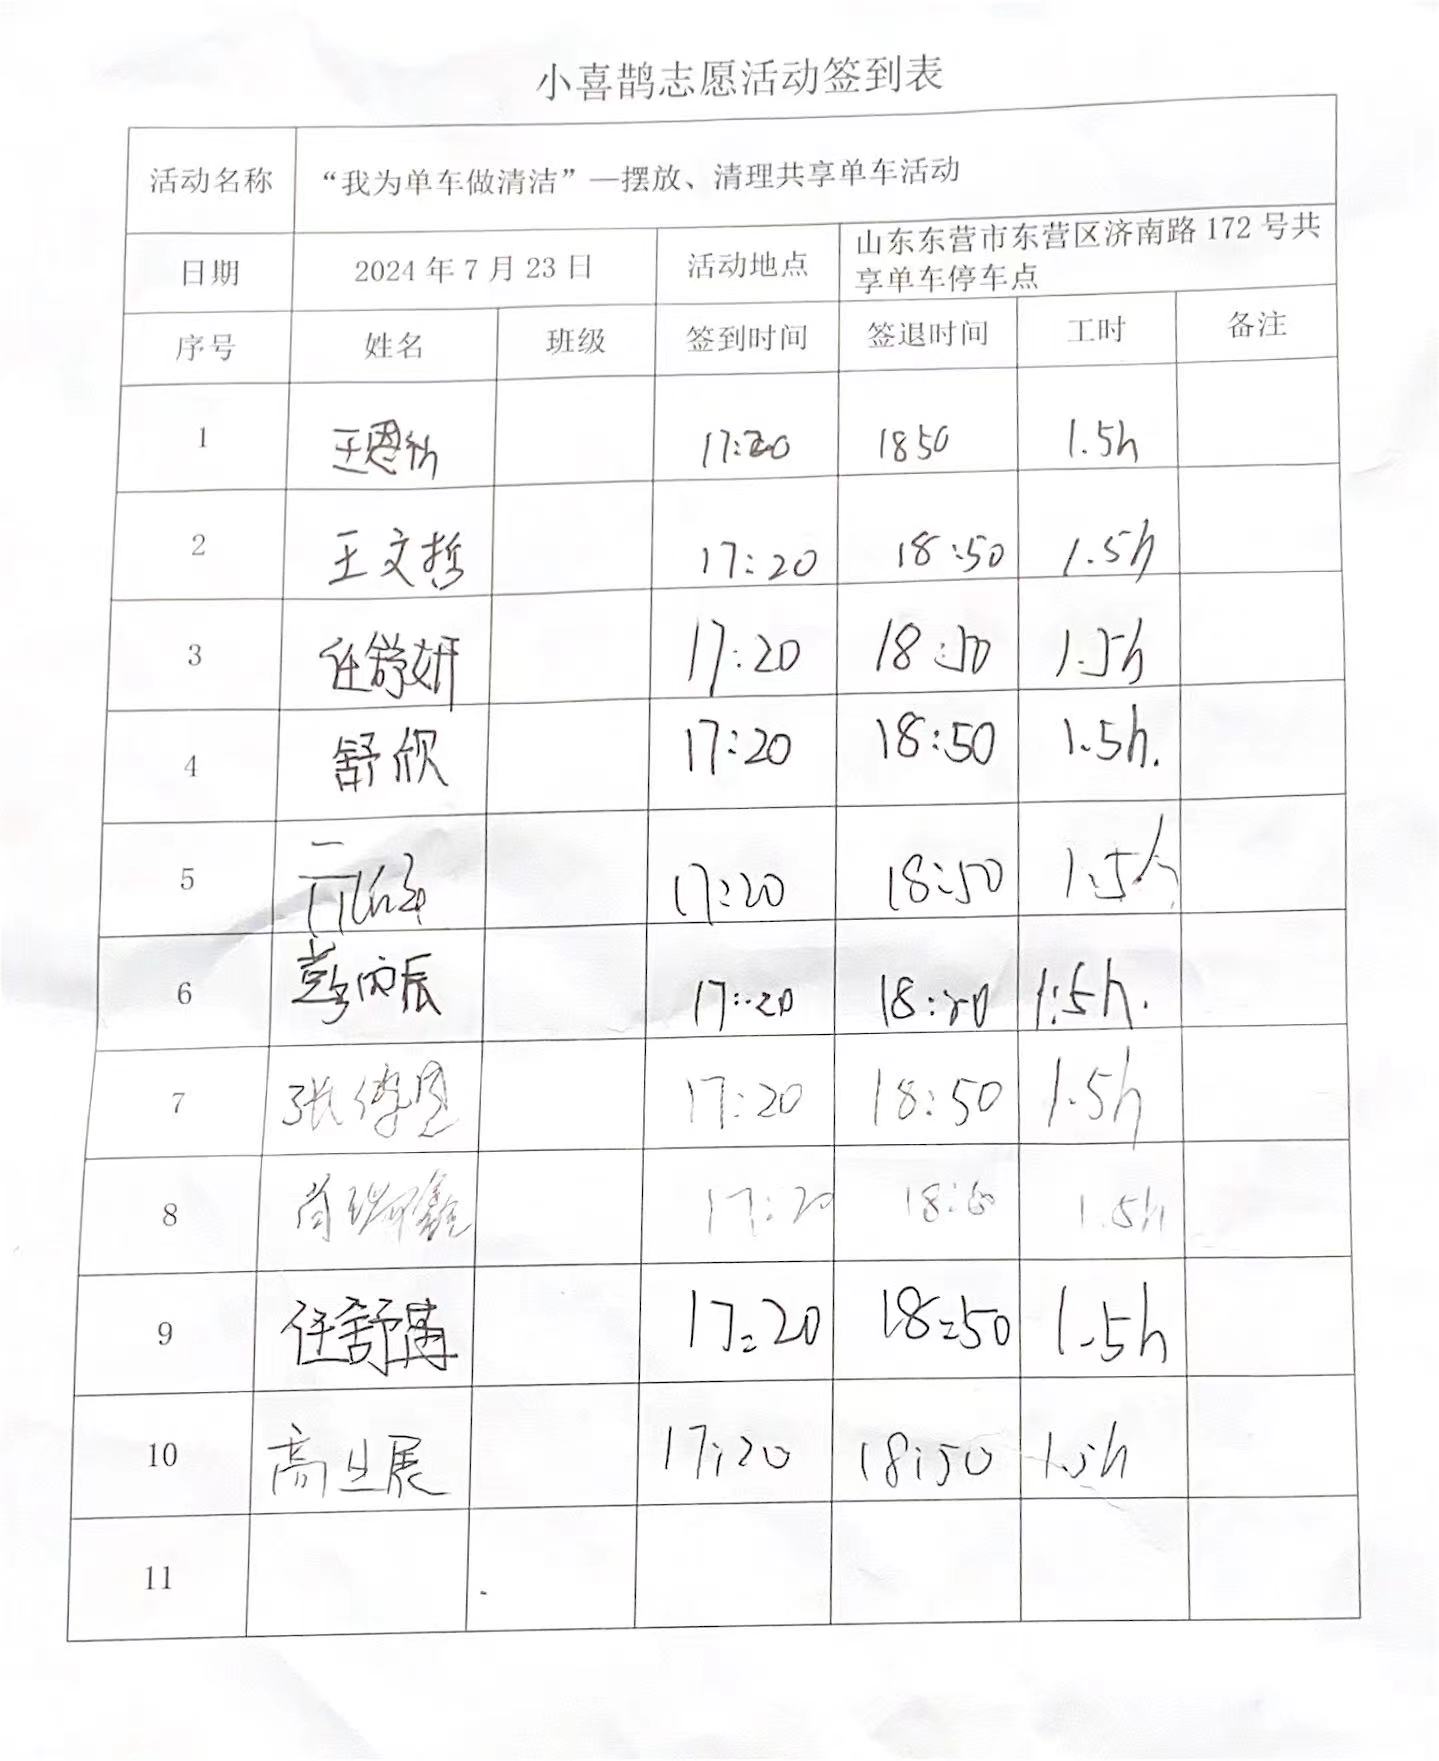 小喜鹊志愿活动签到表
活动名称 “我为单车做清洁”—摆放、清理共享单车活动
日期 2024年7月23日 活动地点 山东东营市东营区济南路172号共
享单车停车点
序号 姓名 班级 签到时间 签退时间 工时 备注
1 王恩 17:20 1850 1.5h
2 王文哲 17:20 18:50 1.5h
3 任舒妍 17:20 18:50 1.5h
4 舒欣 17:20 18:50 1.5h.
5 17:20 18:50 1.5h
6 彭雨辰 17:20 18:50 1.5h.
7 张 17:20 18:50 1.5h
8 肖瑞鑫 17:20 18:50 1.5h
9 任舒 17:20 18:50 1.5h
10 高业展 17:20 18:50 1.5h
11